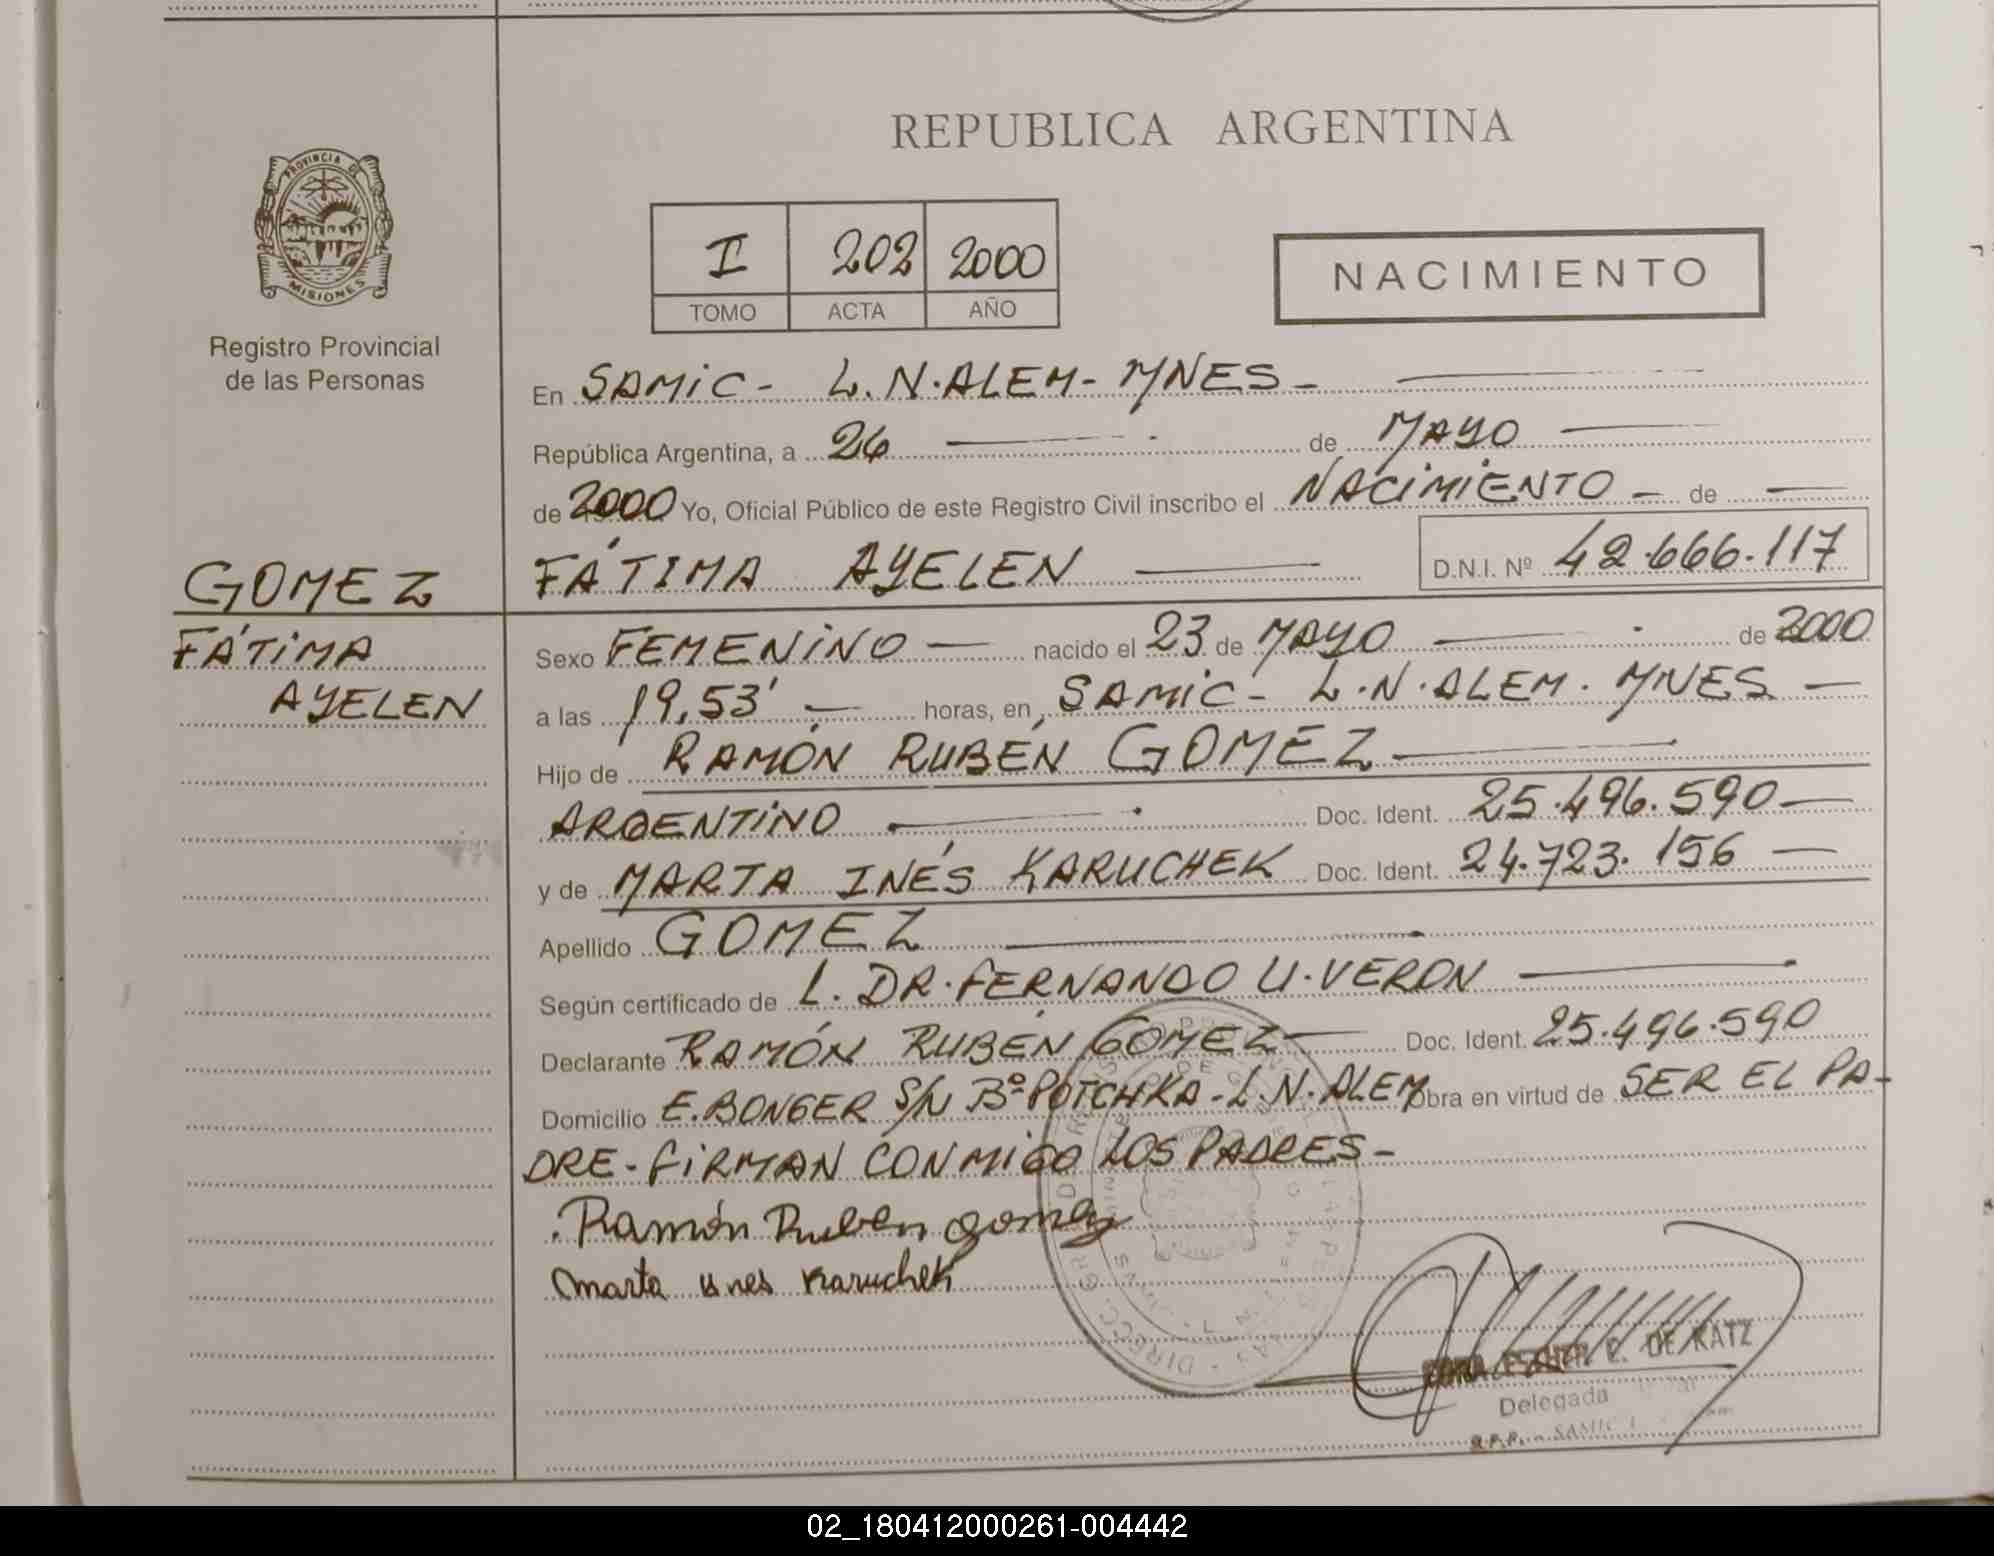 REPUBLICA ARGENTINA
PROVINCIA DE
MISIONES
Registro Provincial
de las Personas
I 202 2000
TOMO ACTA AÑO
NACIMIENTO
En SAMIC - L.N.ALEM - MNES -
República Argentina, a 26 de MAYO
de 2000 Yo, Oficial Público de este Registro Civil inscribo el NACIMIENTO - de
GOMEZ
FÁTIMA AYELEN D.N.I. Nº 42.666.117
FÁTIMA
AYELEN
Sexo FEMENINO nacido el 23 de MAYO de 2000
a las 19,53' horas, en SAMIC - L.N.ALEM. MNES
Hijo de RAMÓN RUBÉN GOMEZ
ARGENTINO Doc. Ident. 25.496.590
y de MARTA INÉS KARUCHEK Doc. Ident. 24.723.156
Apellido GOMEZ
Según certificado de L. DR. FERNANDO U. VERON
Declarante RAMÓN RUBÉN GOMEZ Doc. Ident. 25.496.590
Domicilio E. BONGER S/N Bº POTCHKA - L.N.ALEM Obra en virtud de SER EL PA-
DRE - FIRMAN CONMIGO LOS PADRES -
Ramón Ruben gomez
marta ines Karuchek
DE KATZ
Delegada
R.P.P. - SAMIC
02_180412000261-004442